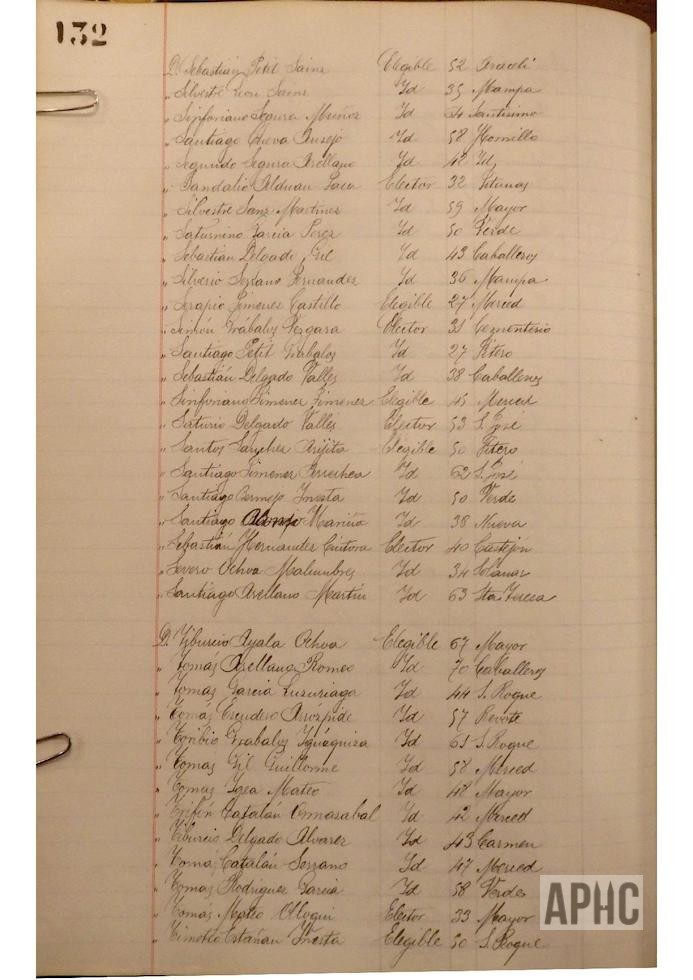 132
D. Sebastián Petit Sainz Elegible 52 Araceli
" Silvestre Leon Sainz Id 35 Mampa
" Sinforiano Segura Muñoz Id 54 Santisimo
" Santiago Cueva Ausejo Id 58 Hornillo
" Segundo Segura Arellano Id 42 Id,
" Sandalio Alduan Laca Elector 32 Gitanas
" Silvestre Sanz Martinez Id 59 Mayor
" Saturnino Garcia Perez Id 50 Verde
" Sebastián Delgado Gil Id 43 Caballeros
" Silverio Serrano Fernandez Id 36 Mampa
" Serapio Jimenez Castillo Elegible 27 Merced
" Simon Trábalos Vergara Elector 31 Cementerio
" Santiago Petit Trabalos Id 27 Fitero
" Sebastián Delgado Valles Id 38 Caballeros
" Sinforiano Jimenez Jimenez Elegible 45 Merced
" Saturio Delgado Valles Elector 53 S. José
" Santos Sanchez Elegible 50 Fitero
" Santiago Jimenez Id 62 S. José
" Santiago Bermejo Ynesta Id 50 Verde
" Santiago Alonso Mariña Id 38 Nueva
" Sebastián Hernandez Cintora Elector 40 Castejón
" Severo Ochoa Malumbres Id 34 Eslavas
" Santiago Arellano Martin Id 63 Sta. Teresa
D. Tiburcio Ayala Ochoa Elegible 67 Mayor
" Tomás Arellano Romeo Id 70 Caballeros
" Tomás Garcia Luzuriaga Id 44 S. Roque
" Tomás Escudero Arózpide Id 57 Rebote
" Toribio Trabalos Yguázniza Id 65 S. Roque
" Tomas Gil Guillorme Id 58 Merced
" Tomas Igea Mateo Id 48 Mayor
" Trifón Catalán Ormazabal Id 42 Merced
" Tiburcio Delgado Alvarez Id 43 Carmen
" Tomás Catalán Serrano Id 47 Merced
" Tomas Rodriguez Garcia Id 58 Verde
" Tomás Mateo Olloqui Elector 33 Mayor
" Timoteo Estañan Ynesta Elegible 50 S. Roque
APHC